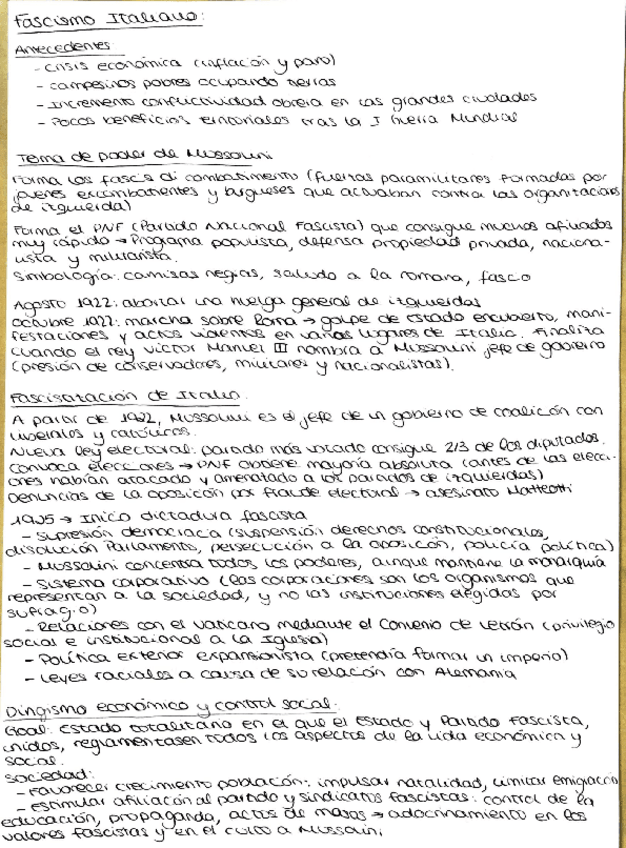 Fascismo Italiano:
Antecedentes
- Crisis económica (inflación y paro)
- campesinos pobres ocupando tierras
- Incremento conflictividad obrera en las grandes ciudades
- Pocos beneficios territoriales tras la I Guerra Mundial
Toma de poder de Mussolini
Forma los fascis di combattimento (fuerzas paramilitares formadas por
jóvenes excombatientes y burgueses que actuaban contra las organizaciones
de izquierda)
Forma el PNF (Partido Nacional Fascista) que consigue muchos afiliados
muy rápido → Programa populista, defensa propiedad privada, naciona-
lista y militarista.
Simbología: camisas negras, saludo a la romana, fasco
Agosto 1922: abortar una huelga general de izquierdas
Octubre 1922: marcha sobre Roma → golpe de estado encubierto, mani-
festaciones y actos violentos en varios lugares de Italia. Finaliza
cuando el rey Victor Manuel III nombra a Mussolini jefe de gobierno
(presión de conservadores, militares y nacionalistas).
Fascistización de Italia.
A partir de 1922, Mussolini es el jefe de un gobierno de coalición con
liberales y católicos.
Nueva ley electoral: partido más votado consigue 2/3 de los diputados.
Convoca elecciones → PNF obtiene mayoría absoluta (antes de las elecci-
ones habían atacado y amenazado a los partidos de izquierdas)
Denuncias de la oposición por fraude electoral → asesinato Matteotti
1925 → Inicio dictadura fascista
- Supresión democracia (suspensión derechos constitucionales,
disolución Parlamento, persecución a la oposición, policía política)
- Mussolini concentra todos los poderes, aunque mantiene la monarquía
- Sistema corporativo (las corporaciones son los organismos que
representan a la sociedad, y no las instituciones elegidas por
sufragio)
- Relaciones con el Vaticano mediante el Convenio de Letrón (privilegio
social e institucional a la Iglesia)
- Política exterior expansionista (pretendía formar un imperio)
- Leyes raciales a causa de su relación con Alemania
Dirigismo económico y control social:
Goal: Estado totalitario en el que el Estado y Partido Fascista,
unidos, reglamentasen todos los aspectos de la vida económica y
social.
Sociedad:
- Favorecer crecimiento población: impulsar natalidad, limitar emigración
- Estimular afiliación al partido y sindicatos fascistas: control de la
educación, propaganda, actos de masas → adoctrinamiento en los
valores fascistas y en el culto a Mussolini